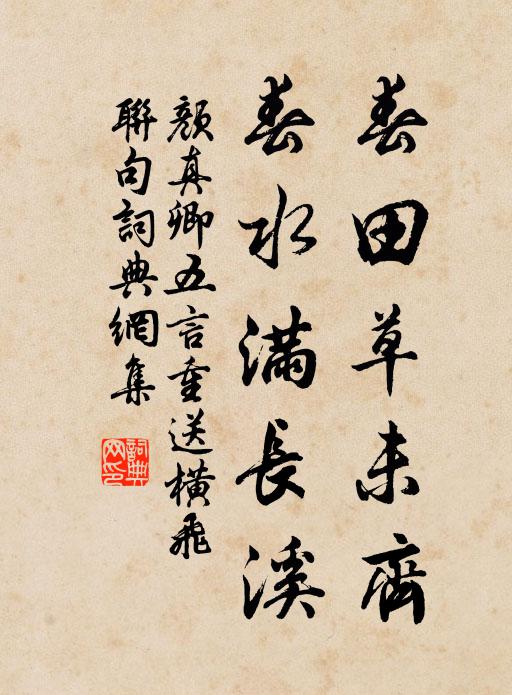 春田草未齊
春水滿長溪
顏真卿五言重送橫飛
聯句詞典網集
詞典網印